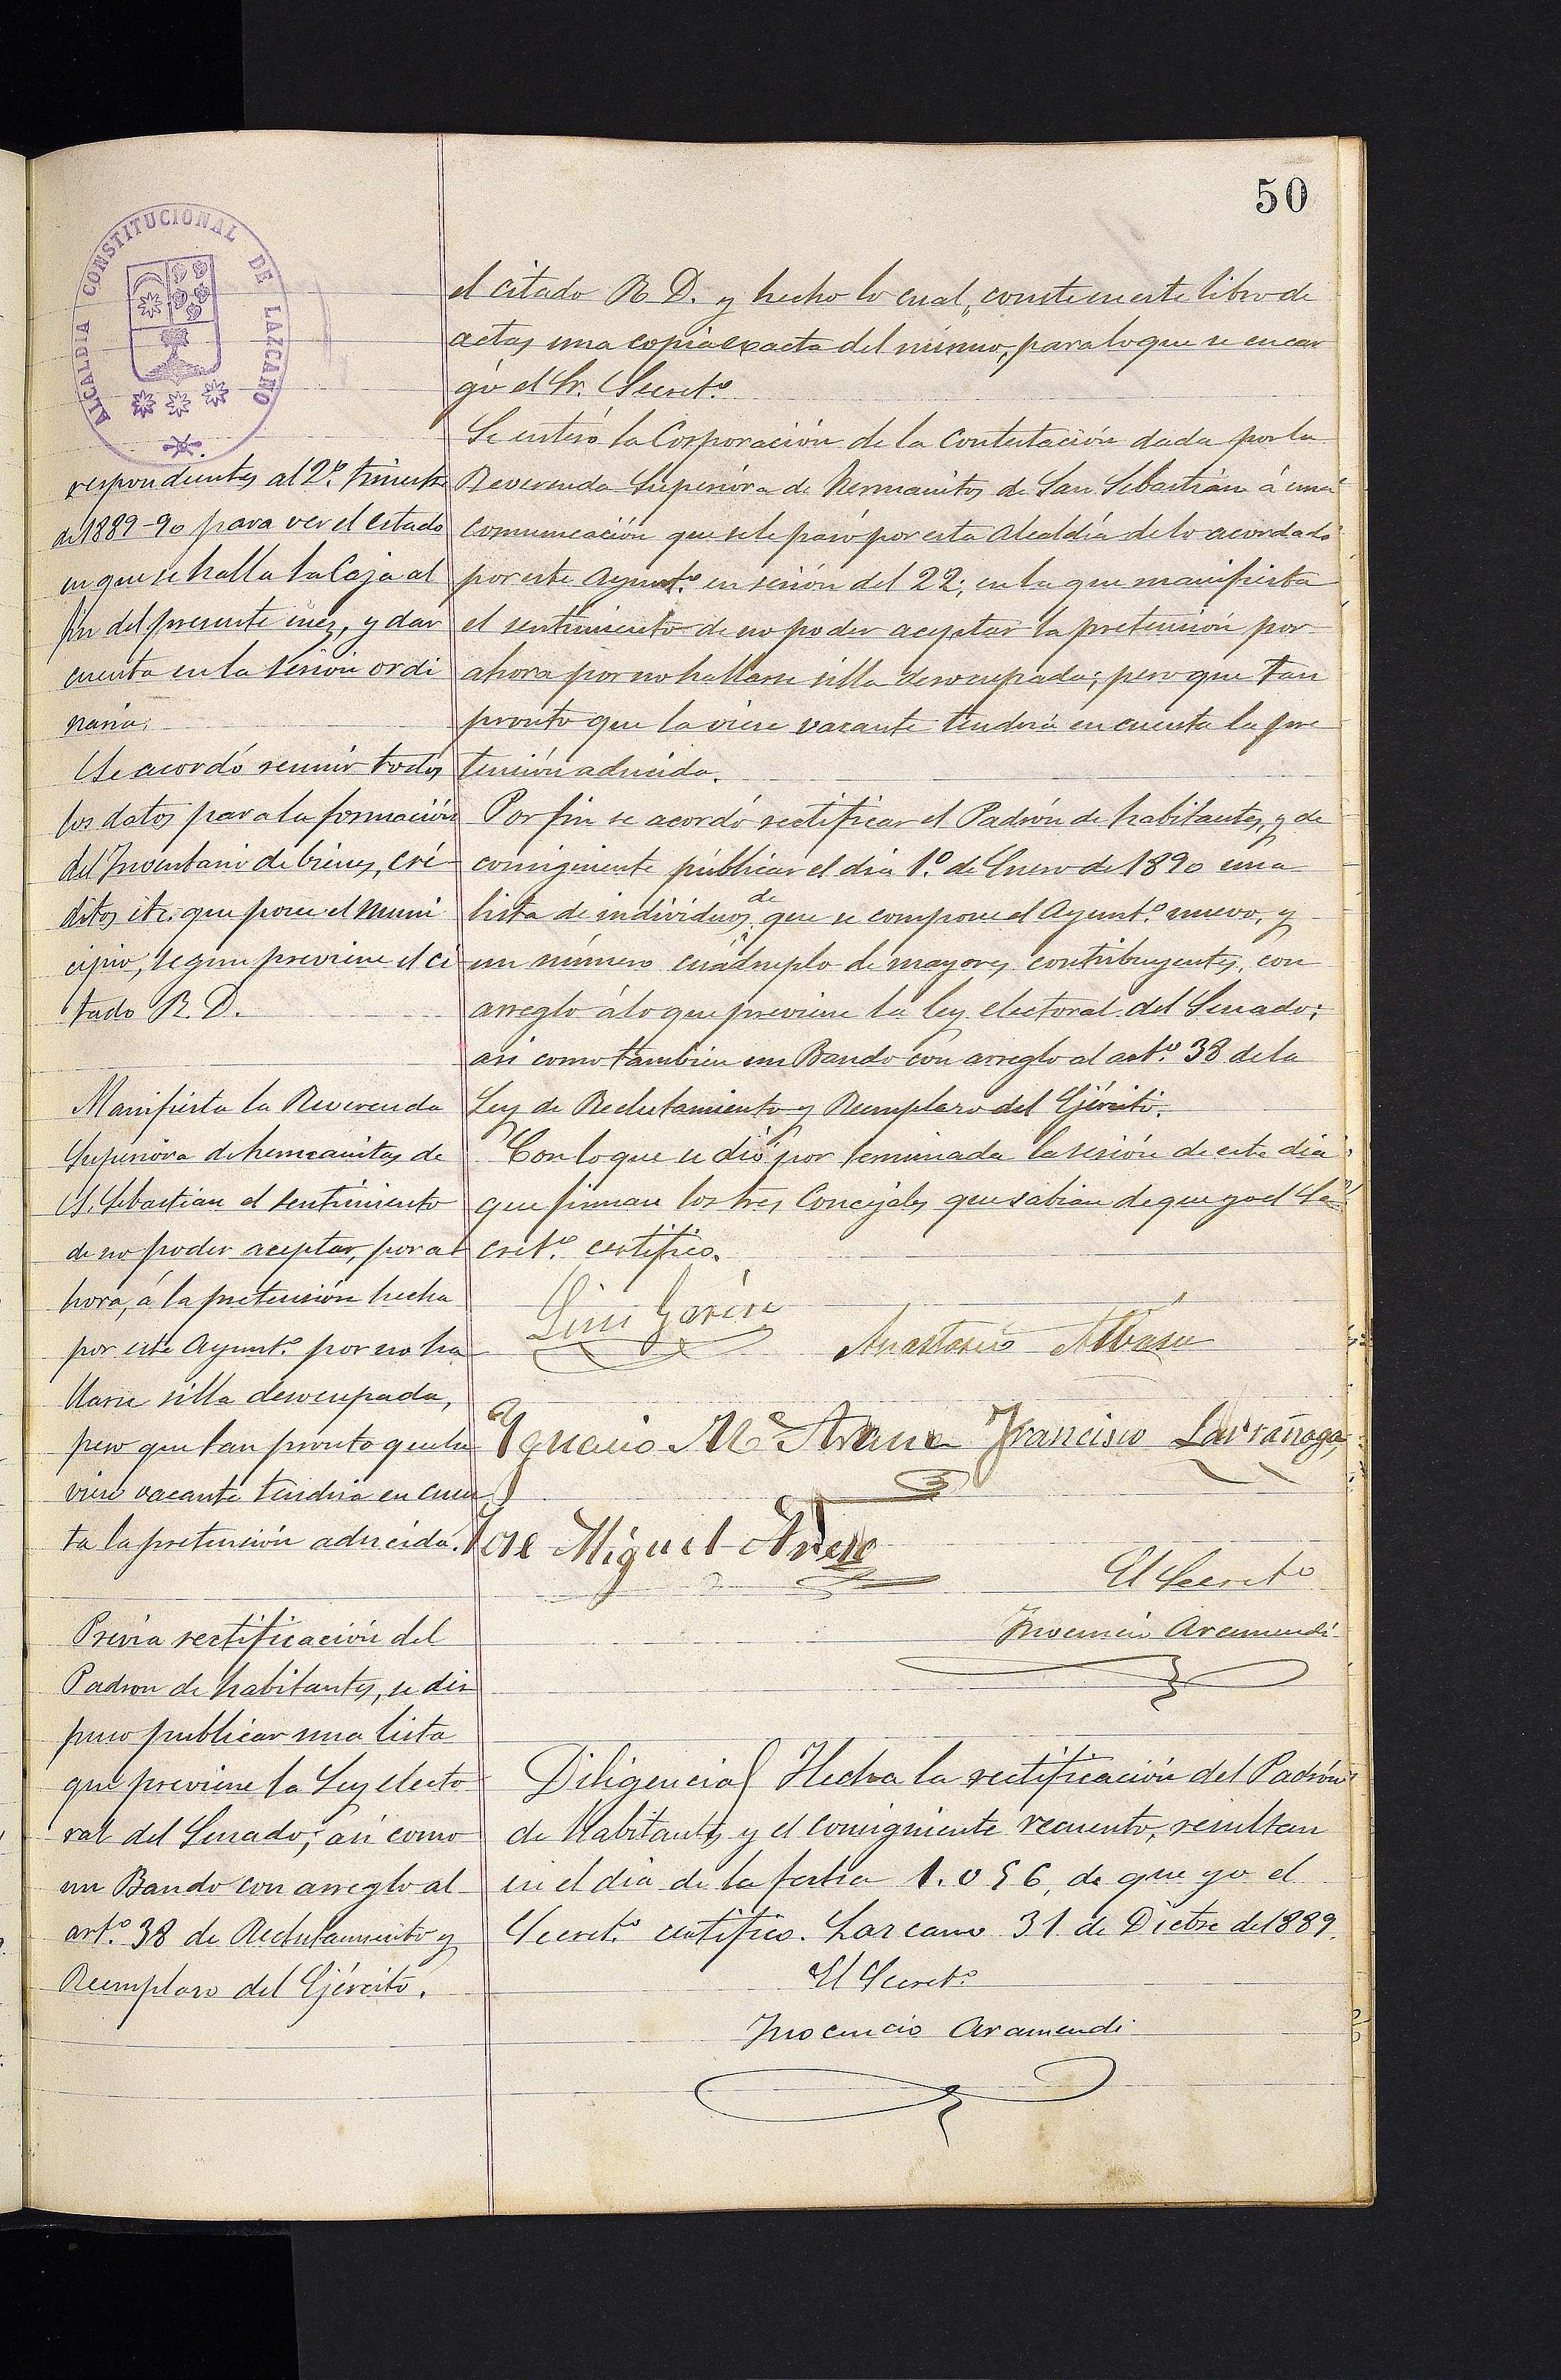 50
ALCALDIA CONSTITUCIONAL DE LAZCANO
respondientes al 2º. trimestre
de 1889-90 para ver el estado
en que se halla la Caja al
fin del presente mes, y dar
cuenta en la sesión ordi
naria.
Se acordó reunir todos
los datos para la formación
del Inventario de bienes, cré-
ditos etc. que posee el muni
cipio, segun previene el ci
tado R. D.
Manifiesta la Reverenda
Superióra de hermanitas de
S. Sebastian el sentimiento
de no poder aceptar, por a
hora, á la pretensión hecha
por este Ayunt.º por no ha
llarse silla desocupada,
pero que tan pronto que la
viese vacante tendria en cuen
ta la pretensión aducida.
Prévia rectificación del
Padron de habitantes, se dis
puso publicar una lista
que previene la Ley electo
ral del Senado; asi como
un Bando con arreglo al
art.º 38 de Reclutamiento y
Reemplazo del Ejército.
el citado R D. y hecho lo cual, conste en este libro de
actas una copia exacta del mismo, para lo que se encar
gó el Sr. Secret.º
Se enteró la Corporación de la Contestación dada por la
Reverenda Superióra de Hermanitas de San Sebastián á una
comunicación que se le pasó por esta Alcaldía de lo acordado
por este Ayunt.º en sesión del 22; en la que manifiesta
el sentimiento de no poder aceptar la pretensión por
ahora por no hallarse silla desocupada; pero que tan
pronto que la viese vacante tendria en cuenta la pre
tensión aducida.
Por fin se acordó rectificar el Padrón de habitantes, y de
consiguiente públicar el dia 1.º de Enero de 1890 una
lista de individuos de que se compone el Ayunt.º nuevo, y
un número cuádruplo de mayores contribuyentes, con
arreglo á lo que previene la ley electoral del Senado;
asi como tambien un Bando con arreglo al art.º 38 de la
Ley de Reclutamiento y Reemplazo del Ejército.
Con lo que se dió por terminada la sesión de este dia
que firman los tres Concejales que sabian de que yo el Se
cret.º certifico.
Luis Garin
Anastasio Albisu
Ignacio Mª Arana Francisco Larrañaga
Jose Miguel
El Secret.º
Inocencio Aramendi
Diligencia Hecha la rectificación del Padrón
de Habitantes y el consiguiente recuento, resultan
en el dia de la fecha 1.056, de que yo el
Secret.º certifico. Lazcano 31 de Dicbre de 1889.
El Secret.º
Inocencio Aramendi